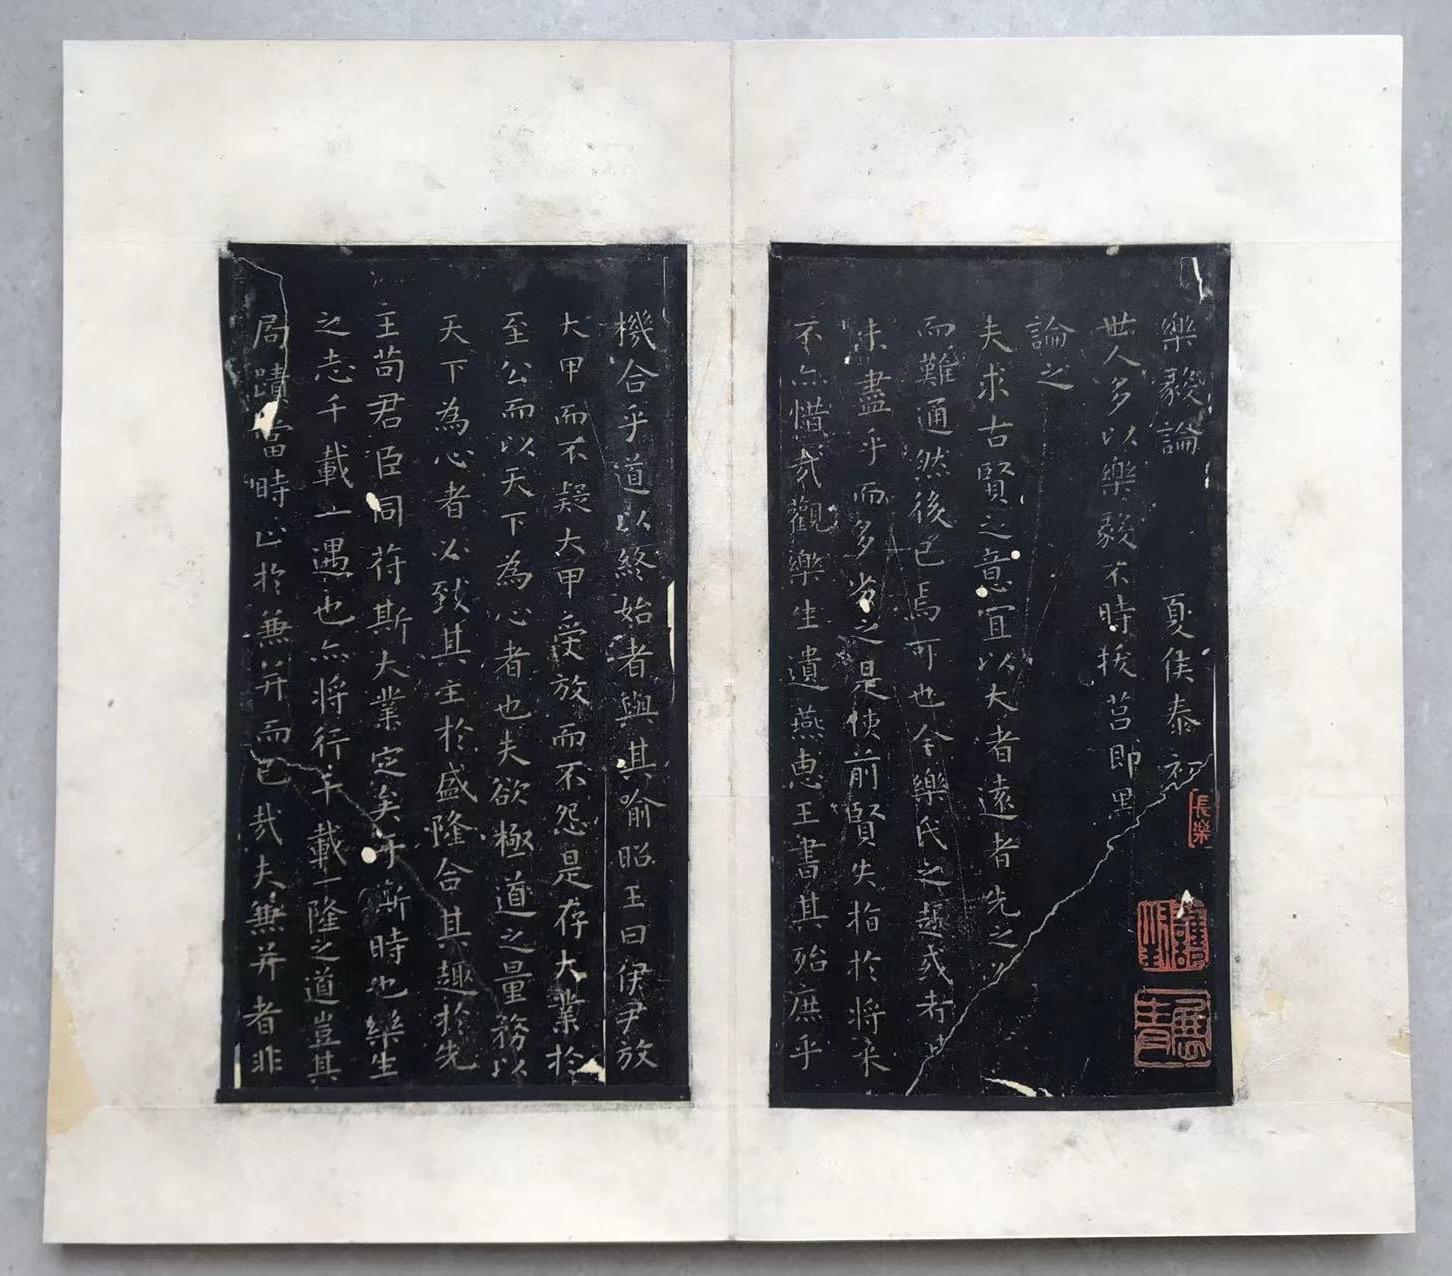 樂毅論 夏侯泰初
世人多以樂毅不時拔莒即墨
論之
夫求古賢之意宜以大者遠者先之必
而難通然後已焉可也今樂氏之趣或者其
未盡乎而多劣之是使前賢失指於將來
不亦惜哉觀樂生遺燕惠王書其殆庶乎
機合乎道以終始者與其喻昭王曰伊尹放
大甲而不疑大甲受放而不怨是存大業於
至公而以天下為心者也夫欲極道之量務以
天下為心者必致其主於盛隆合其趣於先
王苟君臣同符斯大業定矣于斯時也樂生
之志千載一遇也亦將行千載一隆之道豈其
局蹟當時止於兼并而已哉夫兼并者非
長樂